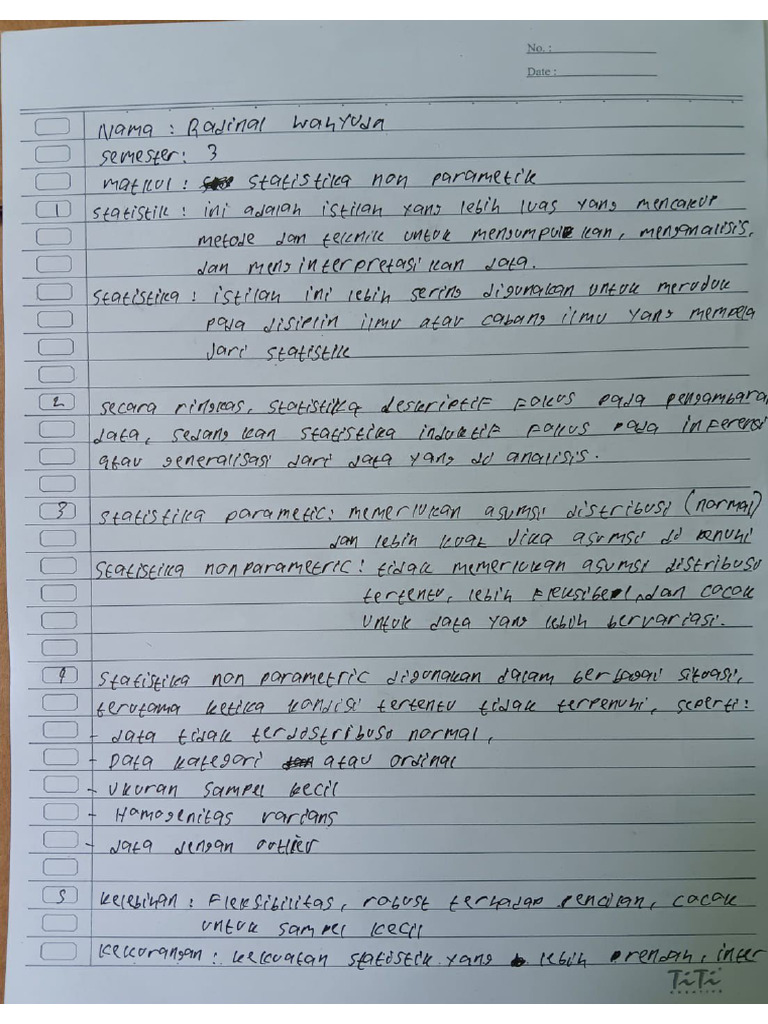 No. :
Date :
Nama : Radinal Wahyuda
Semester : 3
Matkul : Statistika non parametik
1 Statistik : ini adalah istilah yang lebih luas yang mencakup
metode dan teknik untuk mengumpulkan, menganalisis,
dan menginterpretasikan data.
Statistika : istilah ini lebih sering digunakan untuk merujuk
pada disiplin ilmu atau cabang ilmu yang mempela
jari statistik
2 secara ringkas, statistika deskriptif fokus pada pengambaran
data, sedangkan statistika induktif fokus pada inferensi
atau generalisasi dari data yang di analisis.
3 Statistika parametic : memerlukan asumsi distribusi (normal)
dan lebih kuat jika asumsi di penuhi
Statistika nonparametric : tidak memerlukan asumsi distribusi
tertentu, lebih fleksibel, dan cocok
untuk data yang lebih bervariasi.
4 Statistika non parametric digunakan dalam berbagai situasi,
terutama ketika kondisi tertentu tidak terpenuhi, seperti :
- data tidak terdistribusi normal,
- Data kategori atau ordinal
- Ukuran sampel kecil
- Homogenitas varians
- data dengan outlier
5 kelebihan : Fleksibilitas, robust terhadap pencilan, cocok
untuk sampel kecil
kekurangan : kekuatan statistik yang lebih rendah, inter
TiTi